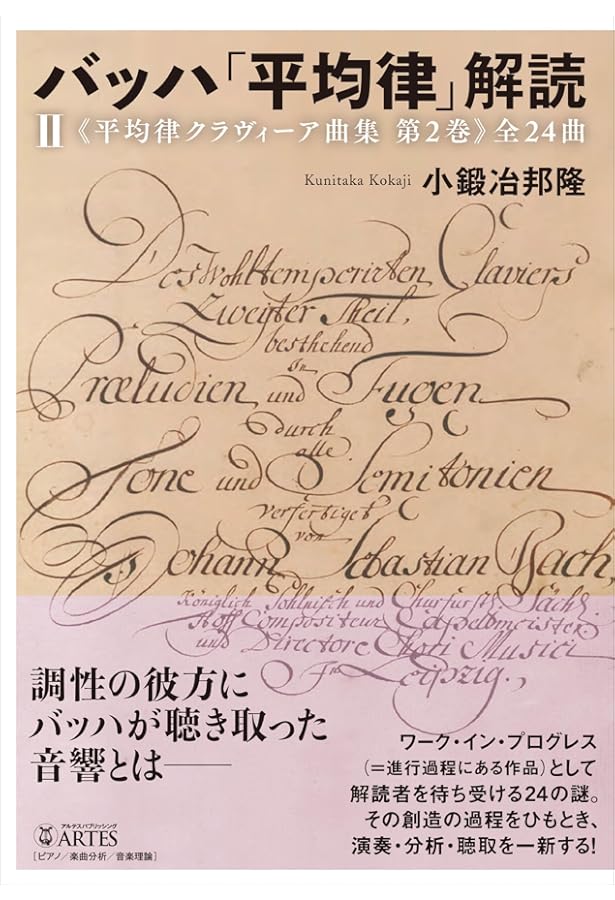 バッハ「平均律」解読
II《平均律クラヴィーア曲集 第2巻》全24曲
Kunitaka Kokaji 小鍛冶邦隆
Des Wohltemperirten Claviers
Zweÿter Theil,
besthehend
in
Præludien und Fugen
durch
alle
Tone und Semitonien
verfertiget
von
Johann Sebastian Bach
Königlich Pohlnisch und Churfürstl. Sächs.
Hoff Compositeur Capellmeister.
und Directore Chori Musici
In
Leipzig.
調性の彼方に
バッハが聴き取った
音響とは——
ワーク・イン・プログレス
(=進行過程にある作品)として
解読者を待ち受ける24の謎。
その創造の過程をひもとき、
演奏・分析・聴取を一新する!
アルテスパブリッシング
ARTES
[ピアノ/楽曲分析/音楽理論]